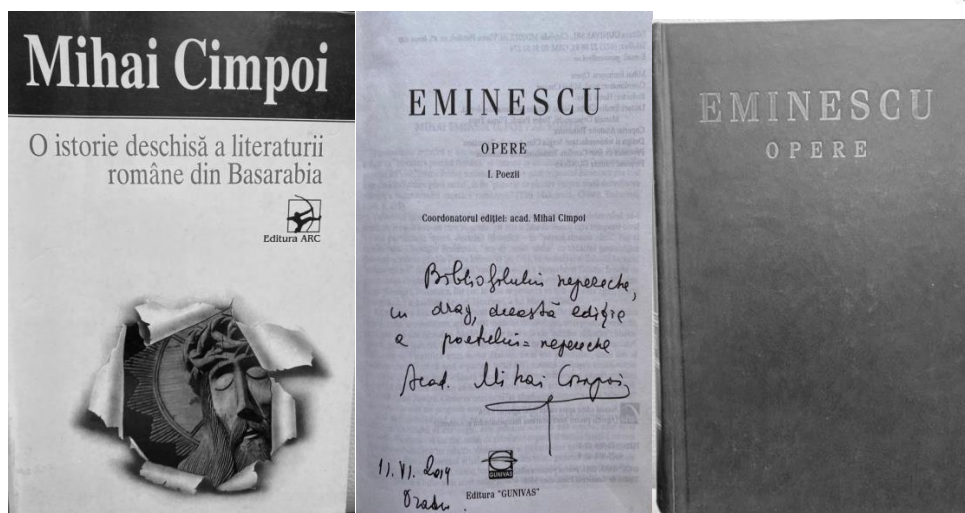 Mihai Cimpoi
O istorie deschisă a literaturii
române din Basarabia
Editura ARC
EMINESCU
OPERE
I. Poezii
Coordonatorul ediţiei: acad. Mihai Cimpoi
Bibliofilului nepereche,
cu drag, această ediţie
a poetului nepereche
Acad. Mihai Cimpoi
11. VI. 2014
GUNIVAS
Editura "GUNIVAS"
EMINESCU
OPERE